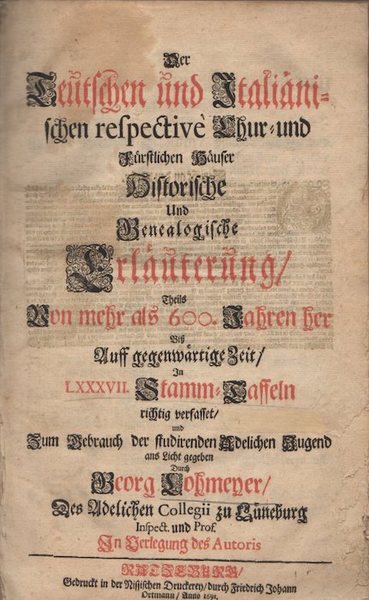 Der
Teutschen und Italiäni-
schen respectivè Chur- und
Fürstlichen Häuser
Historische
Und
Genealogische
Erläuterung/
Theils
Von mehr als 600. Jahren her
Biß
Auff gegenwärtige Zeit/
In
LXXXVII. Stamm-Taffeln
richtig verfasset/
und
Zum Gebrauch der studirenden Adelichen Jugend
ans Licht gegeben
Durch
Georg Lohmeyer/
Des Adelichen Collegii zu Lüneburg
Inspect. und Prof.
In Verlegung des Autoris
RATZEBURG/
Gedruckt in der Nißischen Druckerey/durch Friedrich Johann
Ortmann/ Anno